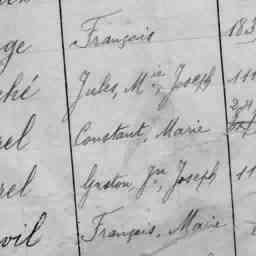 ge François 183
ché Jules, Mie, Joseph 11
rel Constant, Marie
rel Gaston, Jn, Joseph 11
vil François, Marie